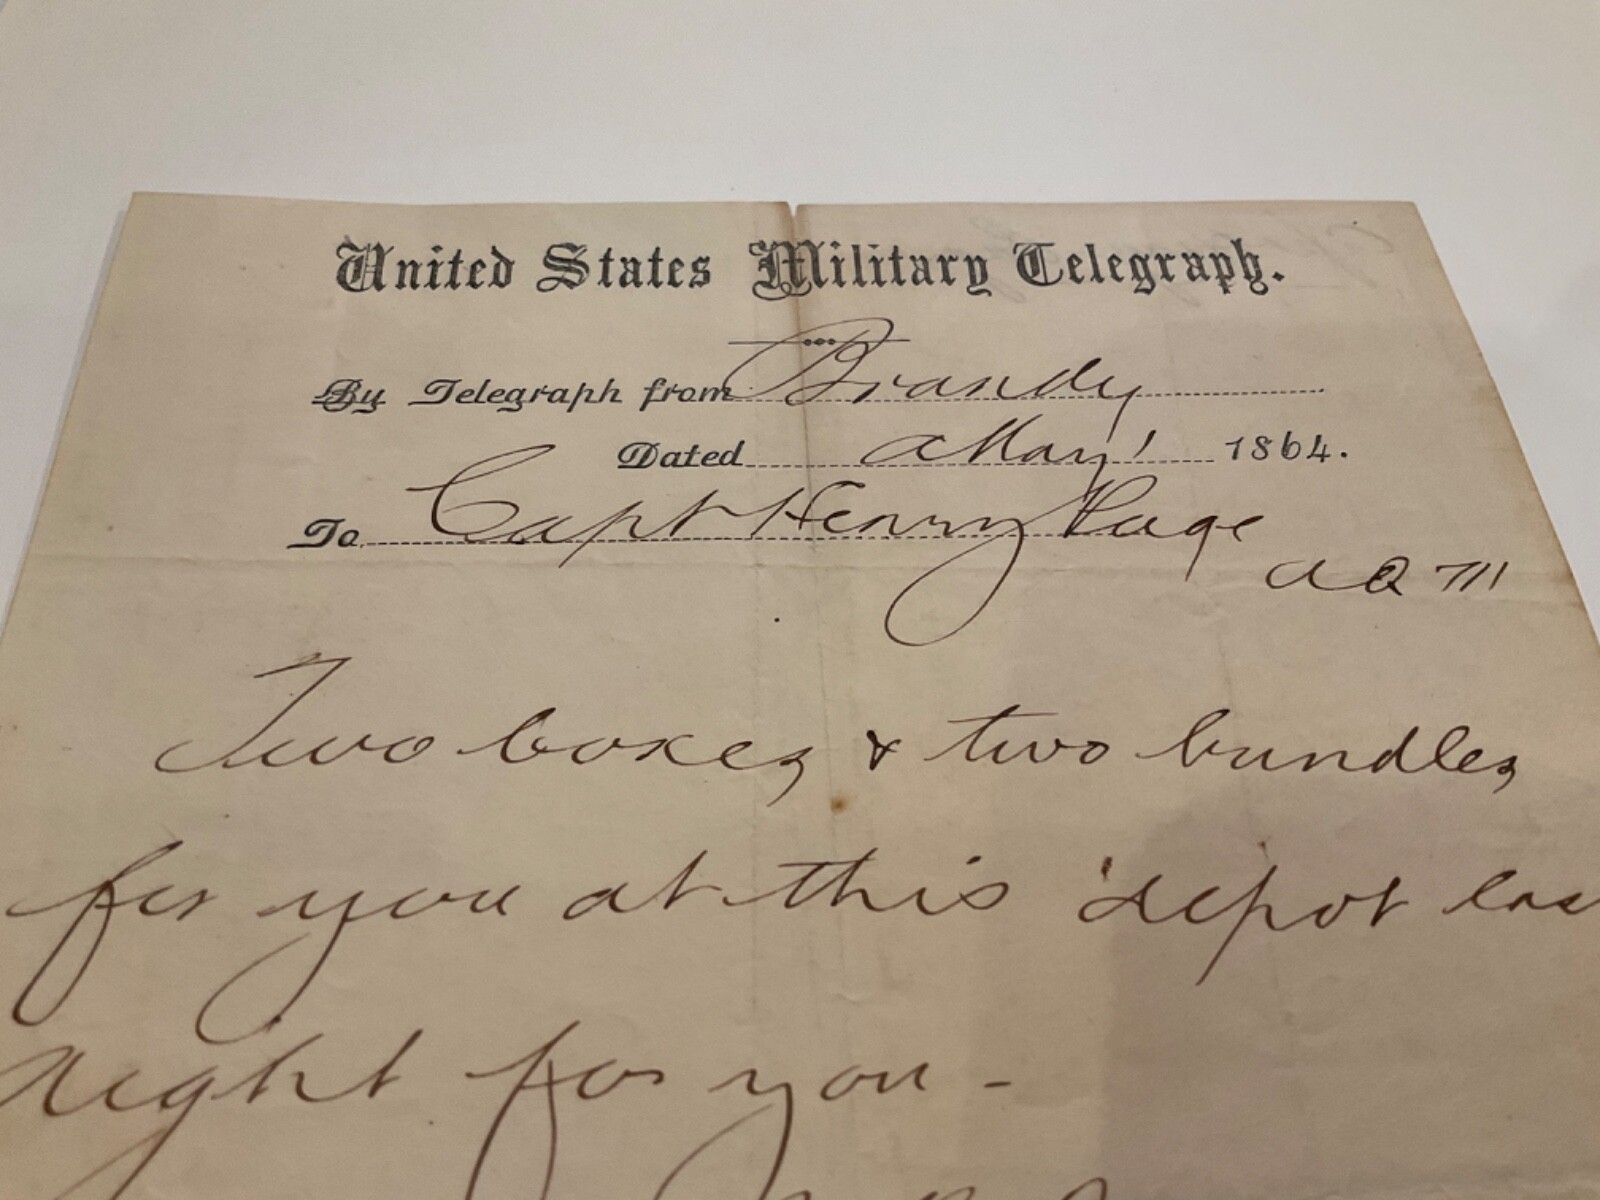 United States Military Telegraph.
By Telegraph from Brandy
Dated May 1 1864.
To Capt Henry Page
AQM
Two boxes & two bundles
for you at this depot las
night for you -